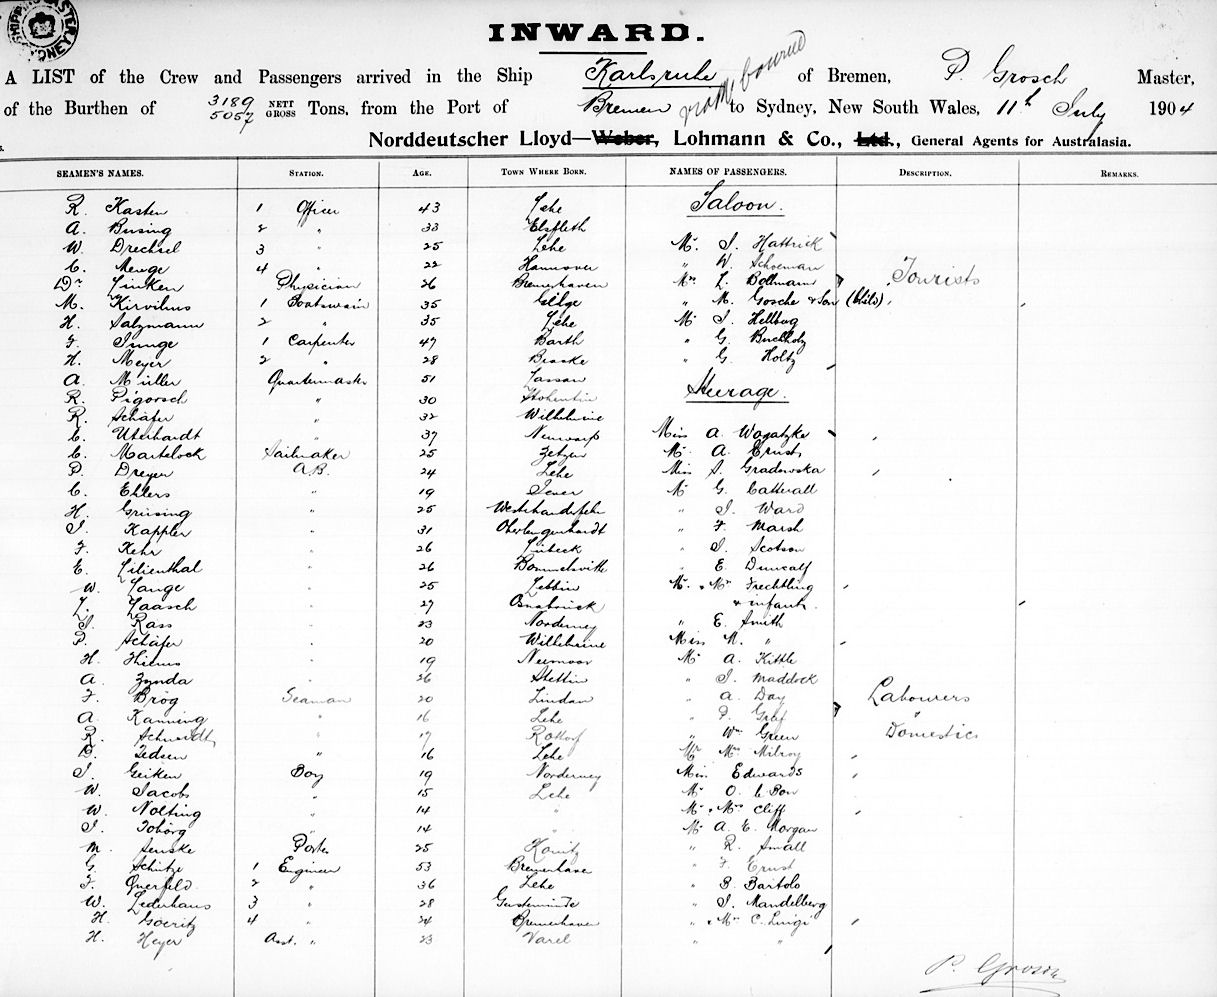 INWARD.
A LIST of the Crew and Passengers arrived in the Ship Karlsruhe of Bremen, P. Grosch Master,
of the Burthen of 3189 NETT 5057 GROSS Tons, from the Port of Bremen via Melbourne to Sydney, New South Wales, 11th July 1904
Norddeutscher Lloyd—Weber, Lohmann & Co., Ltd., General Agents for Australasia.
SEAMEN'S NAMES. STATION. AGE. TOWN WHERE BORN. NAMES OF PASSENGERS. DESCRIPTION. REMARKS.
R. Kasten 1 Officer 43 Lehe Saloon.
A. Büsing 2 " 33 Elsfleth
W. Drechsel 3 " 25 Lehe Mr. J. Hattrick
C. Menge 4 " 22 Hannover " W. Schoeman
Dr Linken Physician 26 Bremerhaven Mrs L. Bollmann Tourists
M. Kirvihus 1 Boatswain 35 Gilge " M. Gosche & Son (blds)
H. Salzmann 2 " 35 Lehe Mr J. Hellbug
F. Junge 1 Carpenter 47 Barth " G. Buchholz
H. Meyer 2 " 28 Braske " G. Holtz
A. Müller Quartermaster 51 Lassan Steerage.
R. Pigorsch " 30
R. Schäfer " 32 Wilhelmine
C. Uterhardt " 37 Neuwarp Miss A. Wogatzke
C. Martelock Sailmaker 25 Zetzen Mr. A. Ernst
P. Dreyer A.B. 24 Lehe Miss S. Gradowska
C. Ehlers " 19 Jever Mr G. Catterall
H. Grüsing " 25 " J. Ward
J. Kappler " 31 Oberlengenhardt " F. Marsh
F. Kehr " 26 Lübeck " J. Scotson
E. Lilienthal " 26 " E. Duncalf
W. Lange " 25 Lebbin Mr. & Mrs Frechtling
L. Laasch " 27 Osnabrück & infant.
J. Rass " 23 Norderney " E. Smith
P. Schäfer " 20 Wilhelmine Miss M. "
H. Thiems " 19 Neermoor Mr A. Kittle
A. Zynda " 26 Stettin " J. Maddock
F. Brög Seaman 20 Lindau " A. Day Labourers
A. Kanning " 16 Lehe " P. Graf "
R. Schmidt " 17 Rottorf " Wm Green Domestics
D. Tedsen " 16 Lehe Mr Mrs Milroy
J. Geiken Boy 19 Norderney Miss Edwards
W. Jacobs " 15 Lehe Mr O. le Bon
W. Nolting " 14 " Mr & Mrs Cliff
J. Toborg " 14 " Mr A. E. Morgan
M. Senske Porter 25 Konitz " R. Small
G. Schütze 1 Engineer 53 Bremerhaven " F. Ernst
F. Querfeld 2 " 36 Lehe " B. Bartolo
W. Lederhaus 3 " 28 Geestemünde " J. Mandelberg
H. Goeritz 4 " 24 Bremerhaven " & Mrs C. Luigi
H. Heyer Asst. " 23 Varel " "
P. Grosch